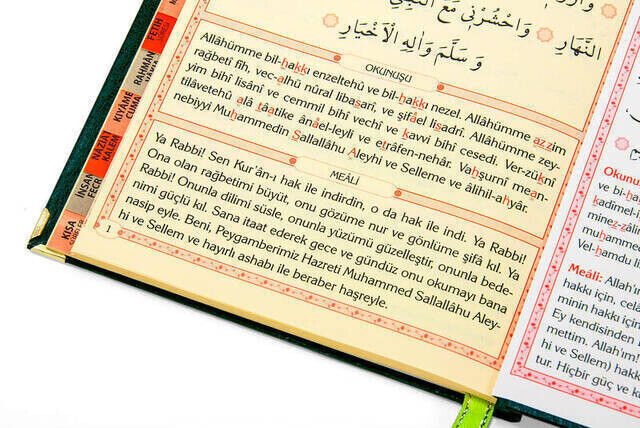 النَّهَارِ وَاحْشُرْنِي مَعَ النَّبِيِّ
وَسَلَّمَ وَاٰلِهِ الْاَخْيَارِ
OKUNUŞU
Allâhümme bil-hakkı enzeltehû ve bil-hakkı nezel. Allâhümme azzim
rağbetî fîh, vec-alhü nûral libasarî, ve şifâel lisadrî. Allâhümme zey-
yim bihî lisânî ve cemmil bihî vechî ve kavvi bihî cesedî. Ver-züknî
tilâvetehû alâ tâatike ânâel-leyli ve etrâfen-nehâr. Vahşurnî mean-
nebiyyi Muhammedin Sallallâhu Aleyhi ve Selleme ve âlihil-ahyâr.
MEÂLİ
Ya Rabbi! Sen Kur'ân-ı hak ile indirdin, o da hak ile indi. Ya Rabbi!
Ona olan rağbetimi büyüt, onu gözüme nur ve gönlüme şifâ kıl. Ya
Rabbi! Onunla dilimi süsle, onunla yüzümü güzelleştir, onunla bede-
nimi güçlü kıl. Sana itaat ederek gece ve gündüz onu okumayı bana
nasip eyle. Beni, Peygamberimiz Hazreti Muhammed Sallallâhu Aley-
hi ve Sellem ve hayırlı ashabı ile beraber haşreyle.
1
FETİH
RAHMÂN
KIYÂME
CUMA
NÂZİAT
KALEM
İNSAN
FECR
KISA
Okunu
ve bi-ha
kadîmel-i
minez-zâli
muhamm
Vel-hamdu li
Meâli: Allah'ı
hakkı için, cel
minin hakkı iç
Ey kendisinden
mettim. Allah'ım!
hi ve Sellem) hakk
tur. Hiçbir güç ve k